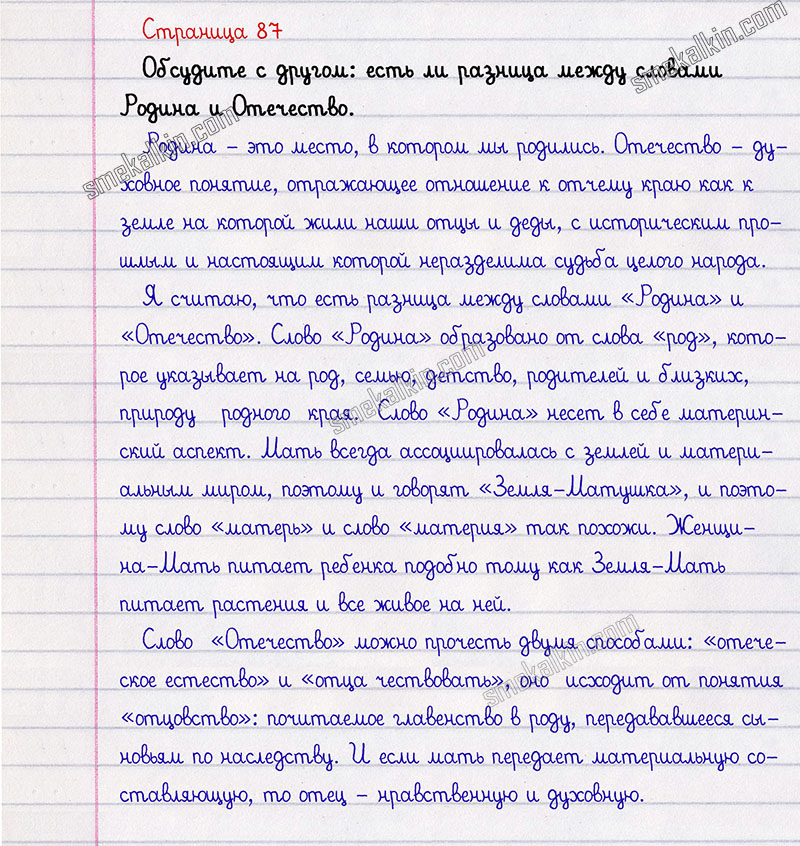 Страница 87
Обсудите с другом: есть ли разница между словами
Родина и Отечество.
Родина – это место, в котором мы родились. Отечество – ду-
ховное понятие, отражающее отношение к отчему краю как к
земле на которой жили наши отцы и деды, с историческим про-
шлым и настоящим которой неразделима судьба целого народа.
Я считаю, что есть разница между словами «Родина» и
«Отечество». Слово «Родина» образовано от слова «род», кото-
рое указывает на род, семью, детство, родителей и близких,
природу родного края. Слово «Родина» несет в себе материн-
ский аспект. Мать всегда ассоциировалась с землей и матери-
альным миром, поэтому и говорят «Земля-Матушка», и поэто-
му слово «матерь» и слово «материя» так похожи. Женщи-
на-Мать питает ребенка подобно тому как Земля-Мать
питает растения и все живое на ней.
Слово «Отечество» можно прочесть двумя способами: «отече-
ское естество» и «отца чествовать», оно исходит от понятия
«отцовство»: почитаемое главенство в роду, передававшееся сы-
новьям по наследству. И если мать передает материальную со-
ставляющую, то отец – нравственную и духовную.
smekalkin.com
smekalkin.com
smekalkin.com
smekalkin.com